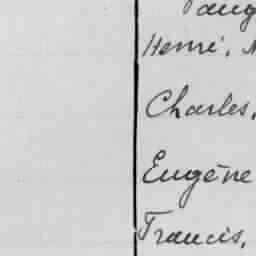 Henri,
Charles,
Eugène
Francis,